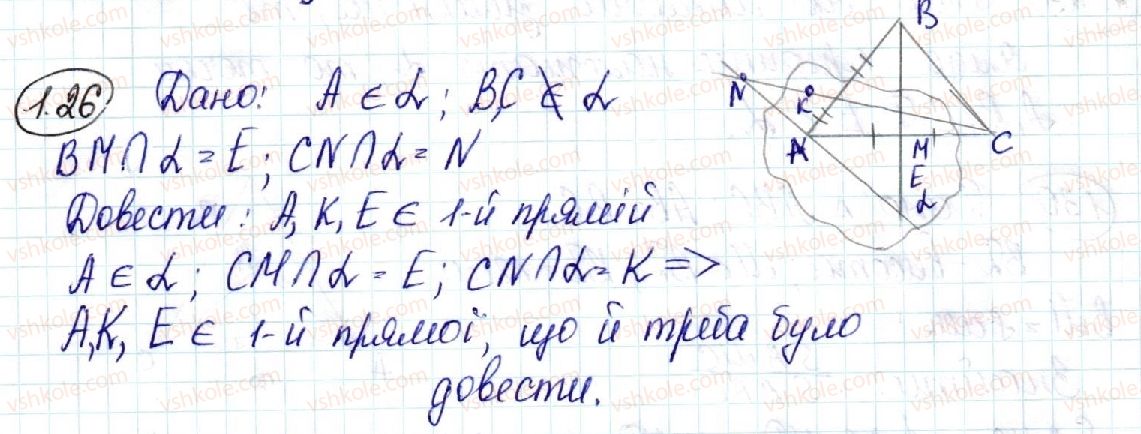 1.26 Дано: A ∈ L; B,C ∉ L
BM∩L = E; CN∩L = N
Довести: A, K, E ∈ 1-й прямій
A ∈ L; CM∩L = E; CN∩L = K =>
A,K, E ∈ 1-й прямої, що й треба було
довести.
B
N K
A M C
E
L
vshkole.com